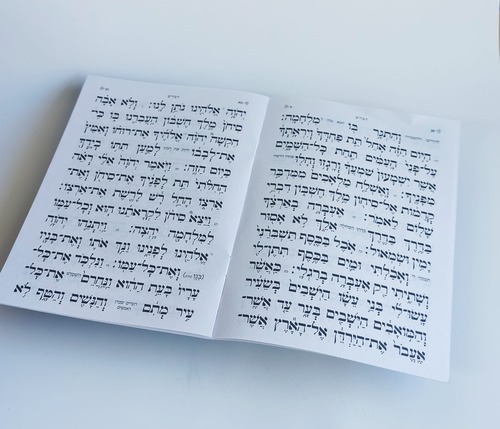 דברים
וְהִתְגָּר בּוֹ מִלְחָמָה׃
הַיּוֹם הַזֶּה אָחֵל תֵּת פַּחְדְּךָ וְיִרְאָתְךָ
עַל־פְּנֵי הָעַמִּים תַּחַת כָּל־הַשָּׁמָיִם
אֲשֶׁר יִשְׁמְעוּן שִׁמְעֲךָ וְרָגְזוּ וְחָלוּ
מִפָּנֶיךָ׃ וָאֶשְׁלַח מַלְאָכִים מִמִּדְבַּר
קְדֵמוֹת אֶל־סִיחוֹן מֶלֶךְ חֶשְׁבּוֹן דִּבְרֵי
שָׁלוֹם לֵאמֹר׃ אֶעְבְּרָה בְאַרְצֶךָ
בַּדֶּרֶךְ בַּדֶּרֶךְ אֵלֵךְ לֹא אָסוּר
יָמִין וּשְׂמֹאול׃ אֹכֶל בַּכֶּסֶף תַּשְׁבִּרֵנִי
וְאָכַלְתִּי וּמַיִם בַּכֶּסֶף תִּתֶּן־לִי
וְשָׁתִיתִי רַק אֶעְבְּרָה בְרַגְלָי׃ כַּאֲשֶׁר
עָשׂוּ־לִי בְּנֵי עֵשָׂו הַיֹּשְׁבִים בְּשֵׂעִיר
וְהַמּוֹאָבִים הַיֹּשְׁבִים בְּעָר עַד אֲשֶׁר־
אֶעֱבֹר אֶת־הַיַּרְדֵּן אֶל־הָאָרֶץ אֲשֶׁר־
דברים
יְהוָה אֱלֹהֵינוּ נֹתֵן לָנוּ׃ וְלֹא אָבָה
סִיחֹן מֶלֶךְ חֶשְׁבּוֹן הַעֲבִרֵנוּ בּוֹ כִּי־
הִקְשָׁה יְהוָה אֱלֹהֶיךָ אֶת־רוּחוֹ וְאִמֵּץ
אֶת־לְבָבוֹ לְמַעַן תִּתּוֹ בְיָדְךָ
כַּיּוֹם הַזֶּה׃ וַיֹּאמֶר יְהוָה אֵלַי רְאֵה
הַחִלֹּתִי תֵּת לְפָנֶיךָ אֶת־סִיחֹן וְאֶת־
אַרְצוֹ הָחֵל רָשׁ לָרֶשֶׁת אֶת־אַרְצוֹ׃
וַיֵּצֵא סִיחֹן לִקְרָאתֵנוּ הוּא וְכָל־עַמּוֹ
לַמִּלְחָמָה יָהְצָה׃ וַיִּתְּנֵהוּ יְהוָה
אֱלֹהֵינוּ לְפָנֵינוּ וַנַּךְ אֹתוֹ וְאֶת־בָּנָו
(בָּנָיו קרי) וְאֶת־כָּל־עַמּוֹ׃ וַנִּלְכֹּד אֶת־כָּל־
עָרָיו בָּעֵת הַהִוא וַנַּחֲרֵם אֶת־כָּל־
עִיר מְתִם וְהַנָּשִׁים וְהַטָּף לֹא